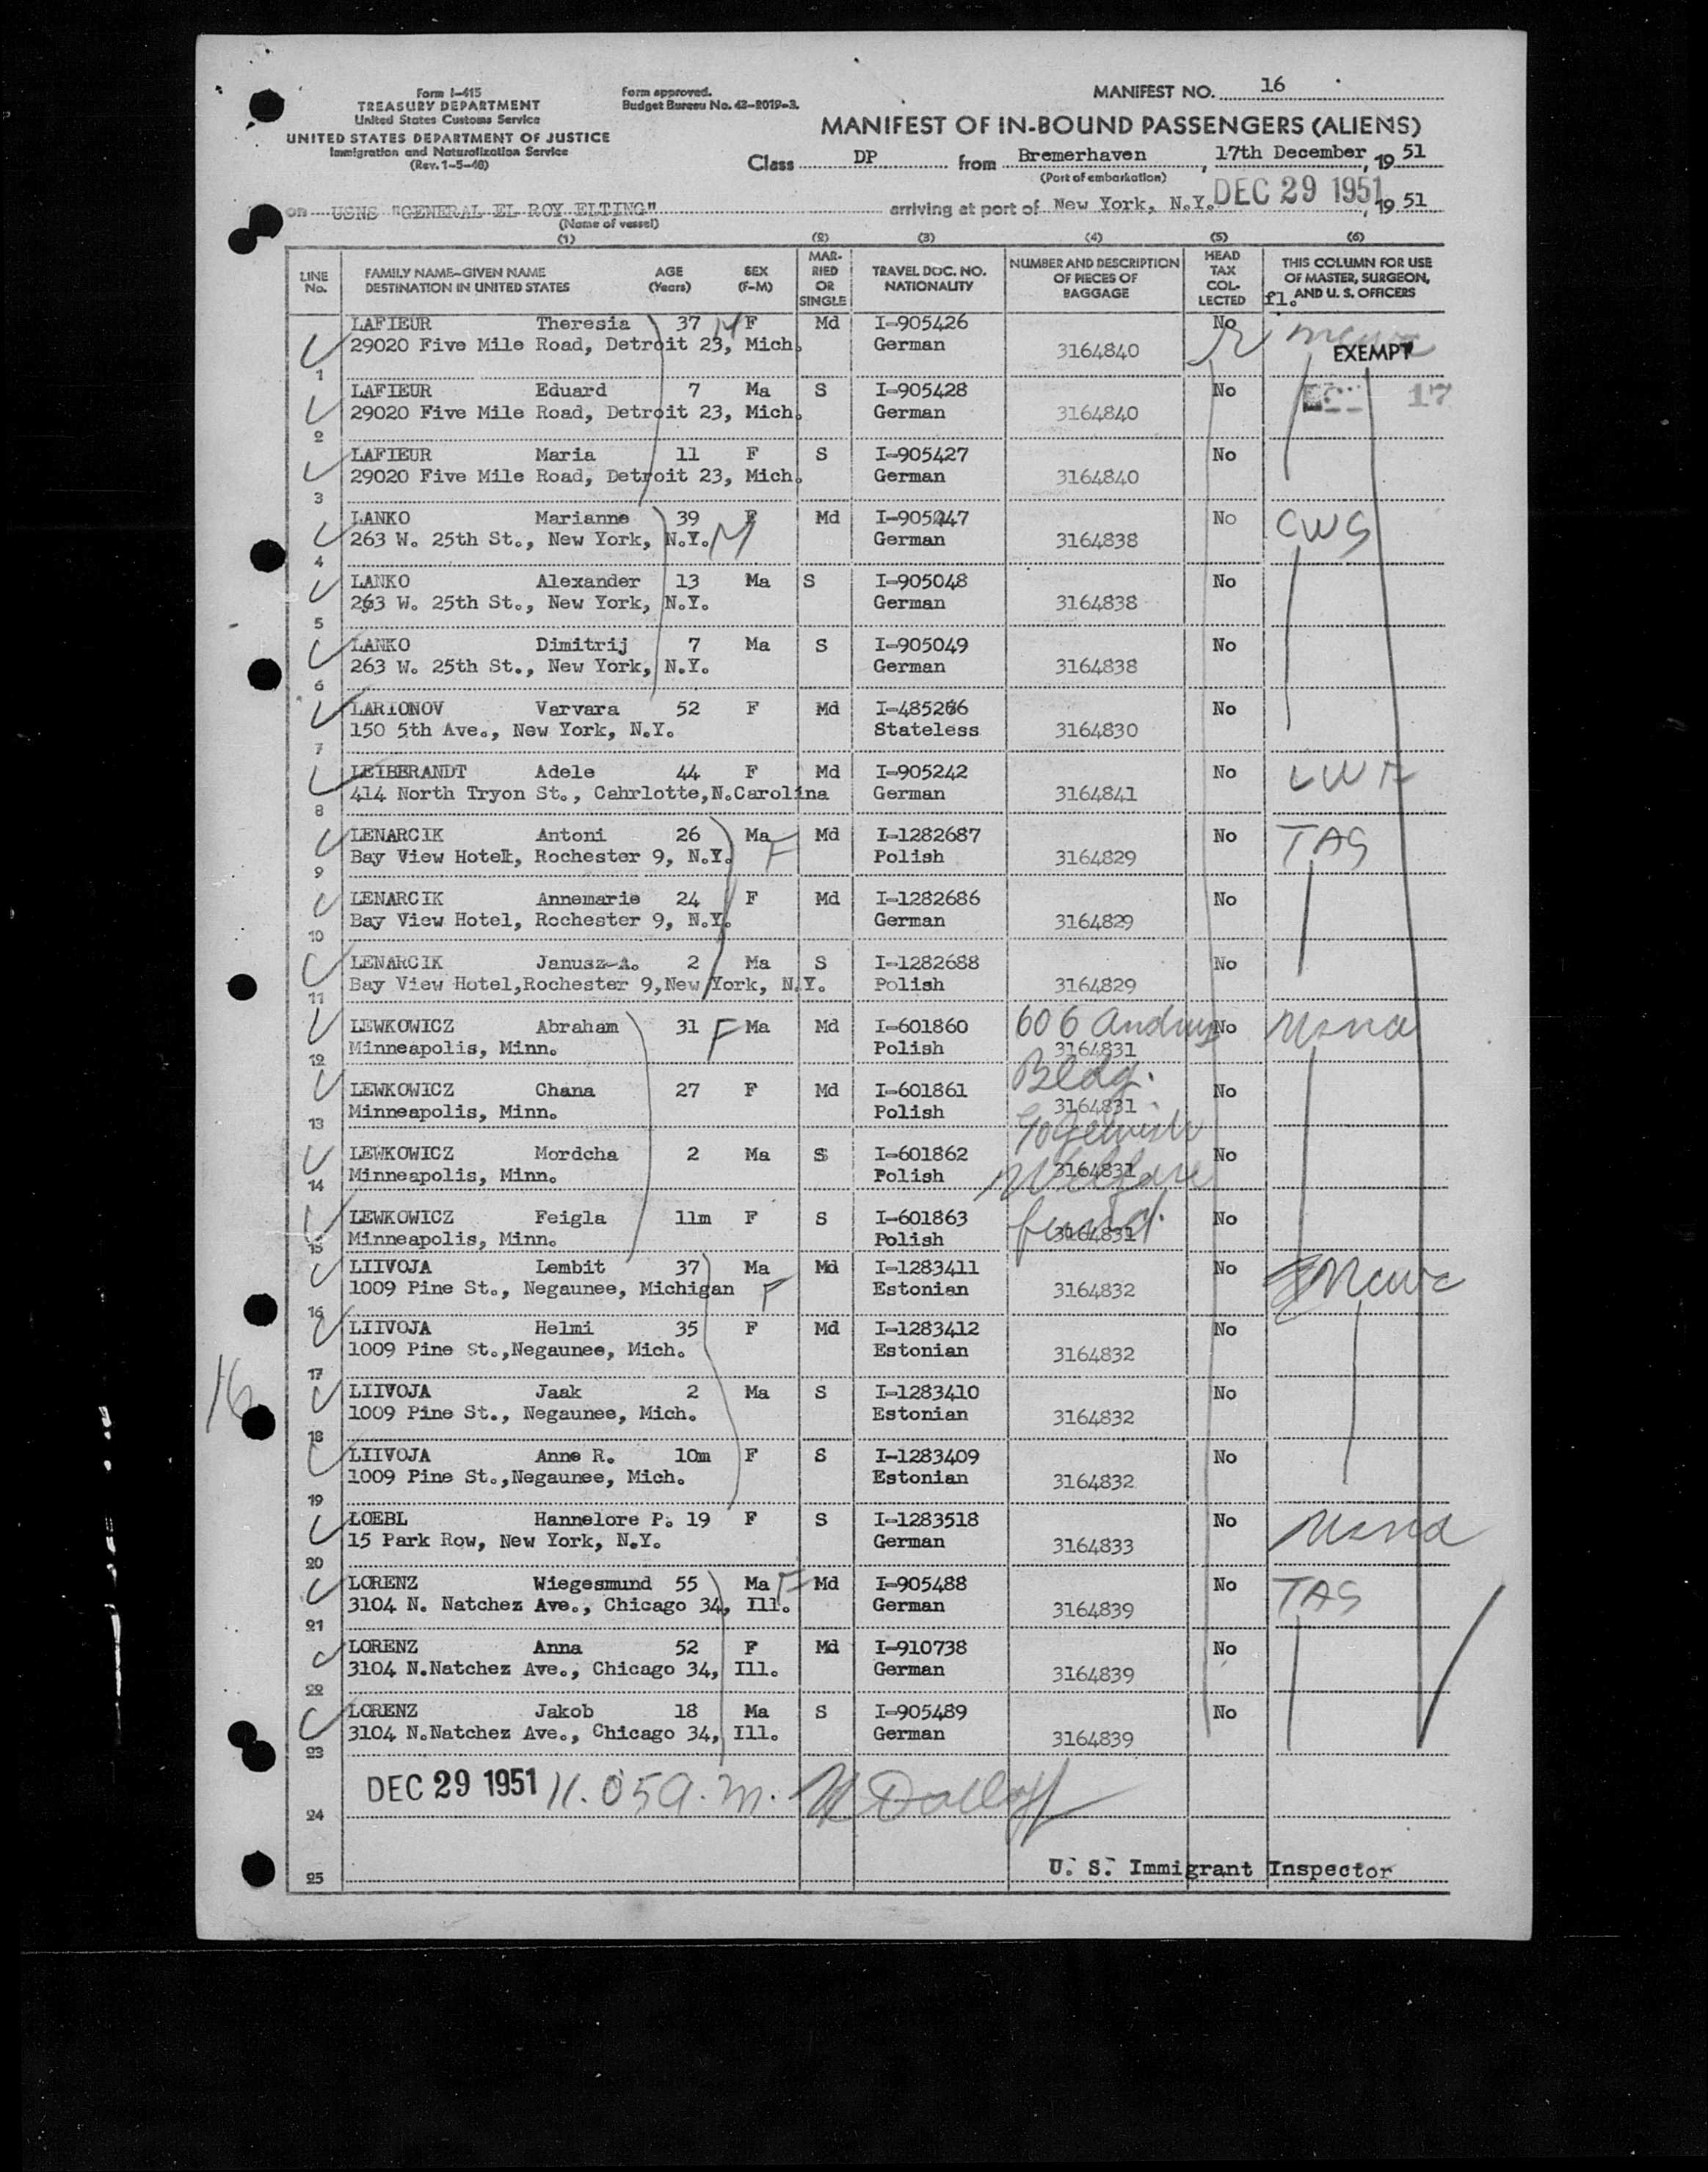 Form I-415
TREASURY DEPARTMENT
United States Customs Service
UNITED STATES DEPARTMENT OF JUSTICE
Immigration and Naturalization Service
(Rev. 1-5-48)
Form approved.
Budget Bureau No. 43-R019-3.
MANIFEST NO. 16
MANIFEST OF IN-BOUND PASSENGERS (ALIENS)
Class DP from Bremerhaven, 17th December, 1951
(Port of embarkation)
on USNS "GENERAL EL ROY ELTING" arriving at port of New York, N.Y. DEC 29 1951, 1951
(Name of vessel)
(1) (2) (3) (4) (5) (6)
LINE No. FAMILY NAME-GIVEN NAME DESTINATION IN UNITED STATES AGE (Years) SEX (F-M) MARRIED OR SINGLE TRAVEL DOC. NO. NATIONALITY NUMBER AND DESCRIPTION OF PIECES OF BAGGAGE HEAD TAX COLLECTED THIS COLUMN FOR USE OF MASTER, SURGEON, AND U. S. OFFICERS
fl.
LAFIEUR Theresia 37 M F Md I-905426 No
29020 Five Mile Road, Detroit 23, Mich. German 3164840 EXEMPT
1
LAFIEUR Eduard 7 Ma S I-905428 No 17
29020 Five Mile Road, Detroit 23, Mich. German 3164840
2
LAFIEUR Maria 11 F S I-905427 No
29020 Five Mile Road, Detroit 23, Mich. German 3164840
3
LANKO Marianne 39 F Md I-905047 No CWS
263 W. 25th St., New York, N.Y. M German 3164838
4
LANKO Alexander 13 Ma S I-905048 No
263 W. 25th St., New York, N.Y. German 3164838
5
LANKO Dimitrij 7 Ma S I-905049 No
263 W. 25th St., New York, N.Y. German 3164838
6
LARIONOV Varvara 52 F Md I-485266 No
150 5th Ave., New York, N.Y. Stateless 3164830
7
LEIBERANDT Adele 44 F Md I-905242 No LWF
414 North Tryon St., Cahrlotte,N.Carolina German 3164841
8
LENARCIK Antoni 26 Ma F Md I-1282687 No TAS
Bay View Hotel, Rochester 9, N.Y. Polish 3164829
9
LENARCIK Annemarie 24 F Md I-1282686 No
Bay View Hotel, Rochester 9, N.Y. German 3164829
10
LENARCIK Janusz-A. 2 Ma S I-1282688 No
Bay View Hotel,Rochester 9,New York, N.Y. Polish 3164829
11
LEWKOWICZ Abraham 31 F Ma Md I-601860 606 Andrus No Usna
Minneapolis, Minn. Polish 3164831
12 Bldg.
LEWKOWICZ Chana 27 F Md I-601861 No
Minneapolis, Minn. Polish 3164831
13 % Jewish
LEWKOWICZ Mordcha 2 Ma S I-601862 No
Minneapolis, Minn. Polish 3164831 Welfare
14
LEWKOWICZ Feigla 11m F S I-601863 fund. No
Minneapolis, Minn. Polish 3164831
15
LIIVOJA Lembit 37 Ma Md I-1283411 No
1009 Pine St., Negaunee, Michigan F Estonian 3164832 Ncwc
16
LIIVOJA Helmi 35 F Md I-1283412 No
1009 Pine St.,Negaunee, Mich. Estonian 3164832
17
LIIVOJA Jaak 2 Ma S I-1283410 No
1009 Pine St., Negaunee, Mich. Estonian 3164832
16
18
LIIVOJA Anne R. 10m F S I-1283409 No
1009 Pine St.,Negaunee, Mich. Estonian 3164832
19
LOEBL Hannelore P. 19 F S I-1283518 No Usna
15 Park Row, New York, N.Y. German 3164833
20
LORENZ Wiegesmund 55 Ma F Md I-905488 No TAS
3104 N. Natchez Ave., Chicago 34, Ill. German 3164839
21
LORENZ Anna 52 F Md I-910738 No
3104 N.Natchez Ave., Chicago 34, Ill. German 3164839
22
LORENZ Jakob 18 Ma S I-905489 No
3104 N.Natchez Ave., Chicago 34, Ill. German 3164839
23
DEC 29 1951 11.05 a.m.
24
U. S. Immigrant Inspector
25